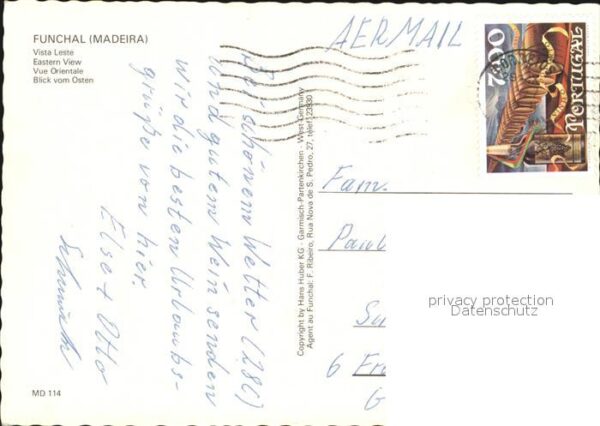 FUNCHAL (MADEIRA)
Vista Leste
Eastern View
Vue Orientale
Blick vom Osten
AERMAIL
7.00
PORTUGAL
Bei schönem Wetter (28C)
und gutem Wein senden
wir die besten Urlaubs-
grüße von hier.
Else + Otto
Copyright by Hans Huber KG - Garmisch-Partenkirchen - West-Germany
Agent au Funchal: F. Ribeiro, Rua Nova de S. Pedro, 27, telef. 23930
Fam.
Paul
Su
6 Fr
G
privacy protection
Datenschutz
MD 114